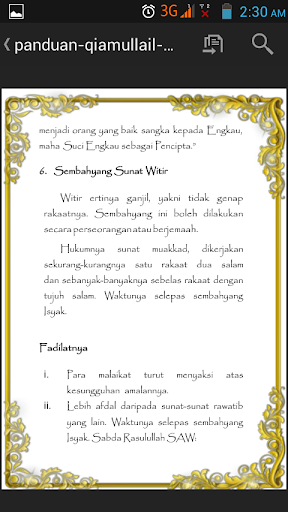 3G 2:30 AM
panduan-qiamullail-...
menjadi orang yang baik sangka kepada Engkau,
maha Suci Engkau sebagai Pencipta."
6. Sembahyang Sunat Witir
Witir ertinya ganjil, yakni tidak genap
rakaatnya. Sembahyang ini boleh dilakukan
secara perseorangan atau berjemaah.
Hukumnya sunat muakkad, dikerjakan
sekurang-kurangnya satu rakaat dua salam
dan sebanyak-banyaknya sebelas rakaat dengan
tujuh salam. Waktunya selepas sembahyang
Isyak.
Fadilatnya
i. Para malaikat turut menyaksi atas
kesungguhan amalannya.
ii. Lebih afdal daripada sunat-sunat rawatib
yang lain. Waktunya selepas sembahyang
Isyak. Sabda Rasulullah SAW: